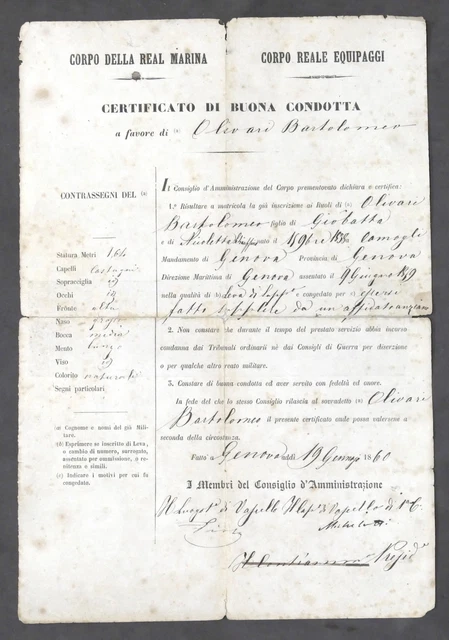 CORPO DELLA REAL MARINA
CORPO REALE EQUIPAGGI
CERTIFICATO DI BUONA CONDOTTA
a favore di (a) Olivari Bartolomeo
CONTRASSEGNI DEL (a)
Statura Metri 1,64
Capelli castagni
Sopracciglia id
Occhi id
Fronte alta
Naso
Bocca media
Mento
Viso
Colorito naturale
Segni particolari
(a) Cognome e nomi del già Militare.
(b) Esprimere se inscritto di Leva,
o cambio di numero, surrogato,
assentato per sommissione, a re-
silienza o simili.
(c) Indicare i motivi per cui fu
congedato.
Il Consiglio d'Amministrazione del Corpo prementovato dichiara e certifica:
1.° Risultare a matricola la già inscrizione ai Ruoli di (a) Olivari
Bartolomeo figlio di Giobatta
e di Nicoletta nato il 9bre Camogli
Mandamento di Genova Provincia di Genova
Direzione Marittima di Genova assentato il 9 Giugno 1859
nella qualità di (b) Leva di e congedato per (c) essersi
fatto supplire da un affidatanziano
2. Non constare che durante il tempo del prestato servizio abbia incorso
condanna dai Tribunali ordinarii nè dai Consigli di Guerra per diserzione
o per qualche altro reato militare.
3. Constare di buona condotta ed aver servito con fedeltà ed onore.
In fede del che lo stesso Consiglio rilascia al suvradetto (a) Olivari
Bartolomeo il presente certificato onde possa valersene a
seconda della circostanza.
Fatto a Genova addì 19 1860
I Membri del Consiglio d'Amministrazione
Il Luogot. di Vascello Il di Vascello di 1a C.